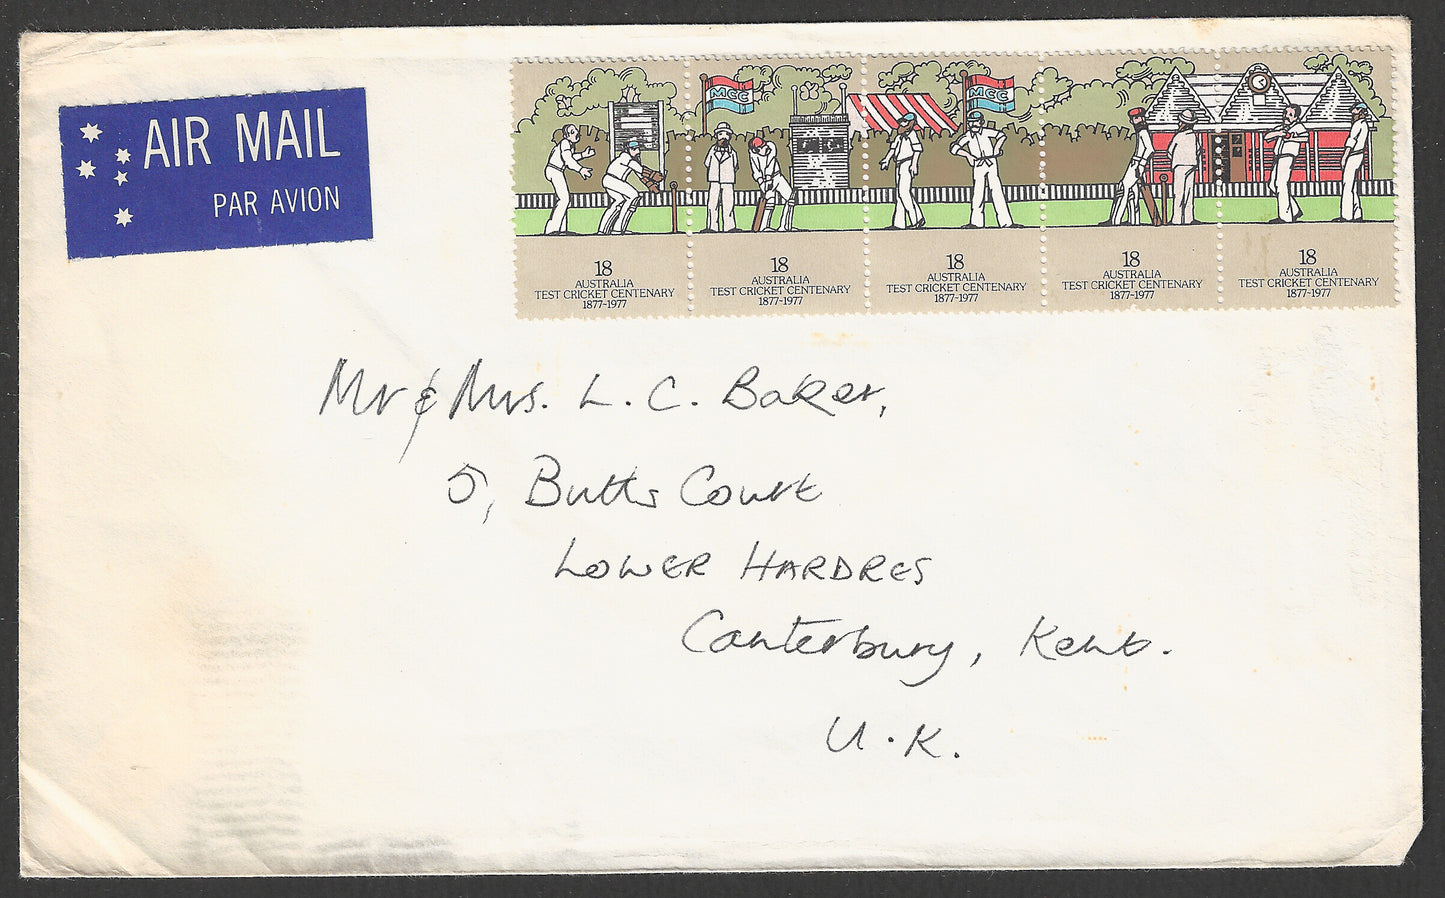 AIR MAIL
PAR AVION
MCC
MCC
18
AUSTRALIA
TEST CRICKET CENTENARY
1877-1977
18
AUSTRALIA
TEST CRICKET CENTENARY
1877-1977
18
AUSTRALIA
TEST CRICKET CENTENARY
1877-1977
18
AUSTRALIA
TEST CRICKET CENTENARY
1877-1977
18
AUSTRALIA
TEST CRICKET CENTENARY
1877-1977
Mr & Mrs. L. C. Baker,
5, Butts Court
LOWER HARDRES
Canterbury, Kent.
U.K.